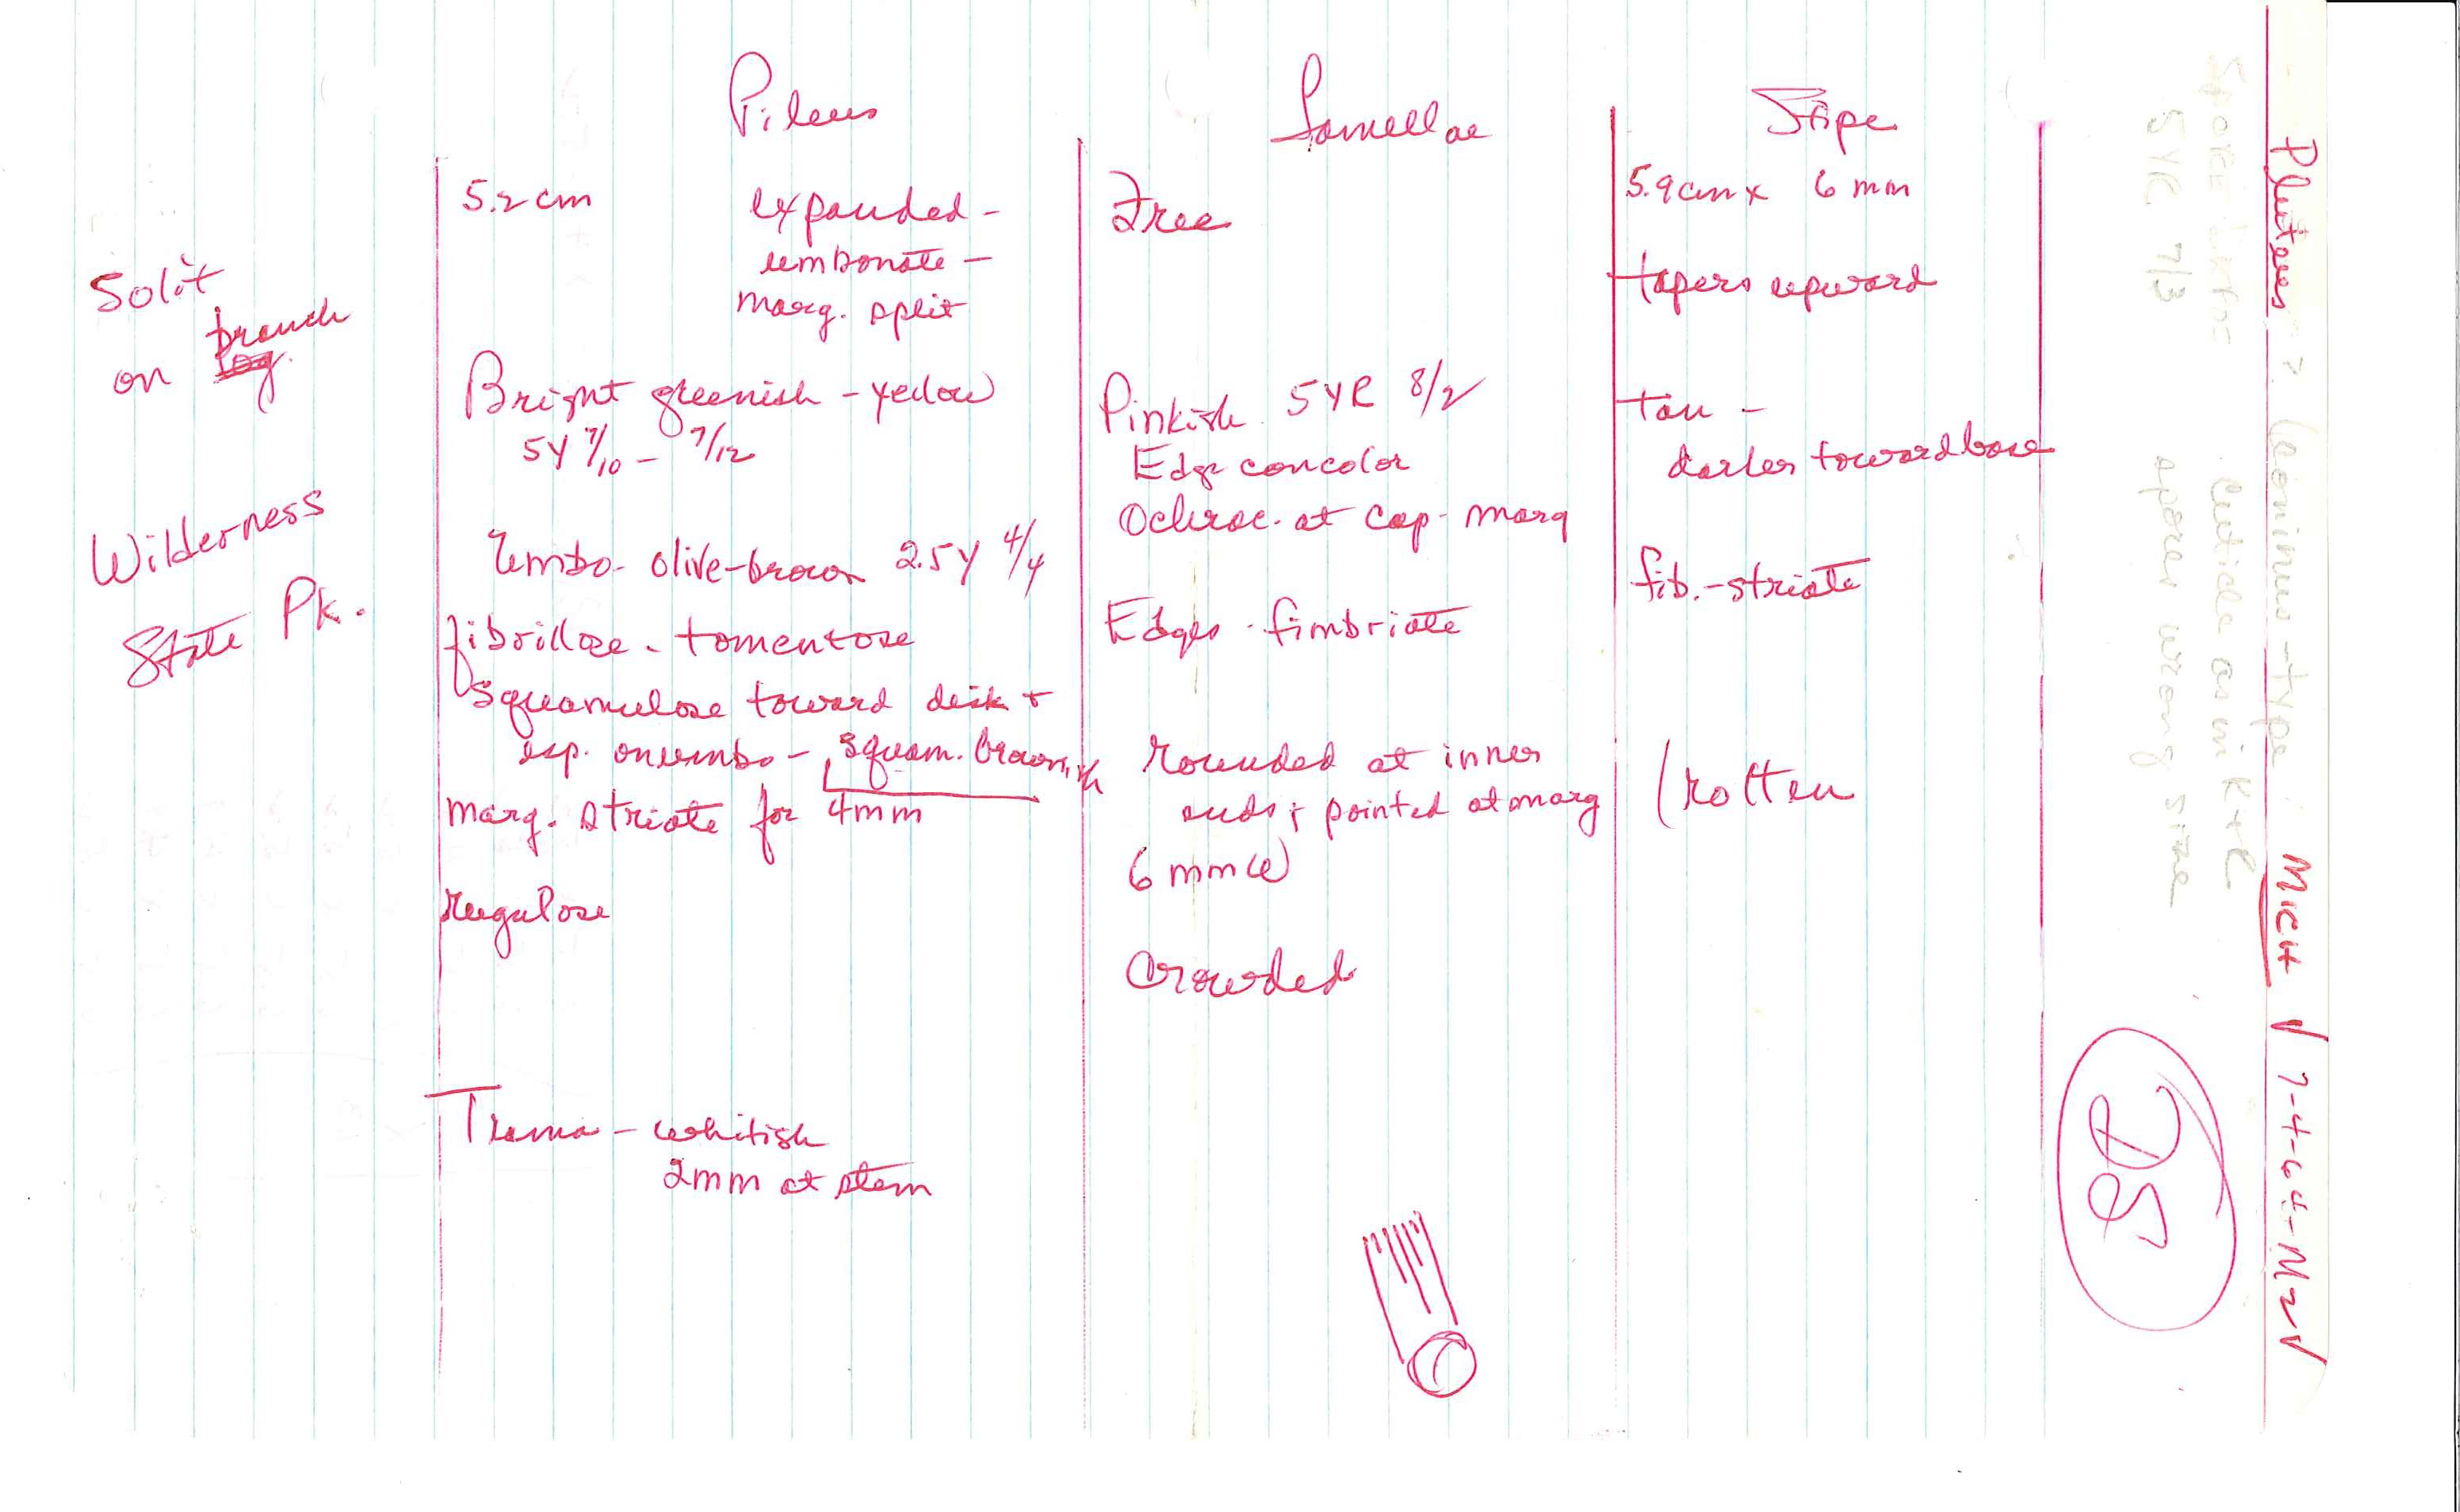 Pluteus ? leoninus-type MICH √ 7-4-64-M2√
Spore
5YR 7/3
cuticle as in K+R
spores wrong size
Solit
on branch
Wilderness
State Pk.
Pileus
5.2 cm
expanded -
umbonate -
marg. split
Bright greenish - yellow
5Y 7/10 - 7/12
Umbo - olive-brown 2.5Y 4/4
fibrillose - tomentose
squamulose toward disk +
esp. on umbo - squam. brownish
marg. striate for 4mm
Rugulose
Trama - whitish
2mm at stem
Lamellae
Free
Pinkish 5YR 8/2
Edge concolor
Ochrac. at cap - marg
Edges - fimbriate
Rounded at inner
ends; pointed at marg
6 mm (w)
Crowded
Stipe
5.9cm x 6 mm
tapers upward
tan -
darker toward base
fib.-striate
(rotten